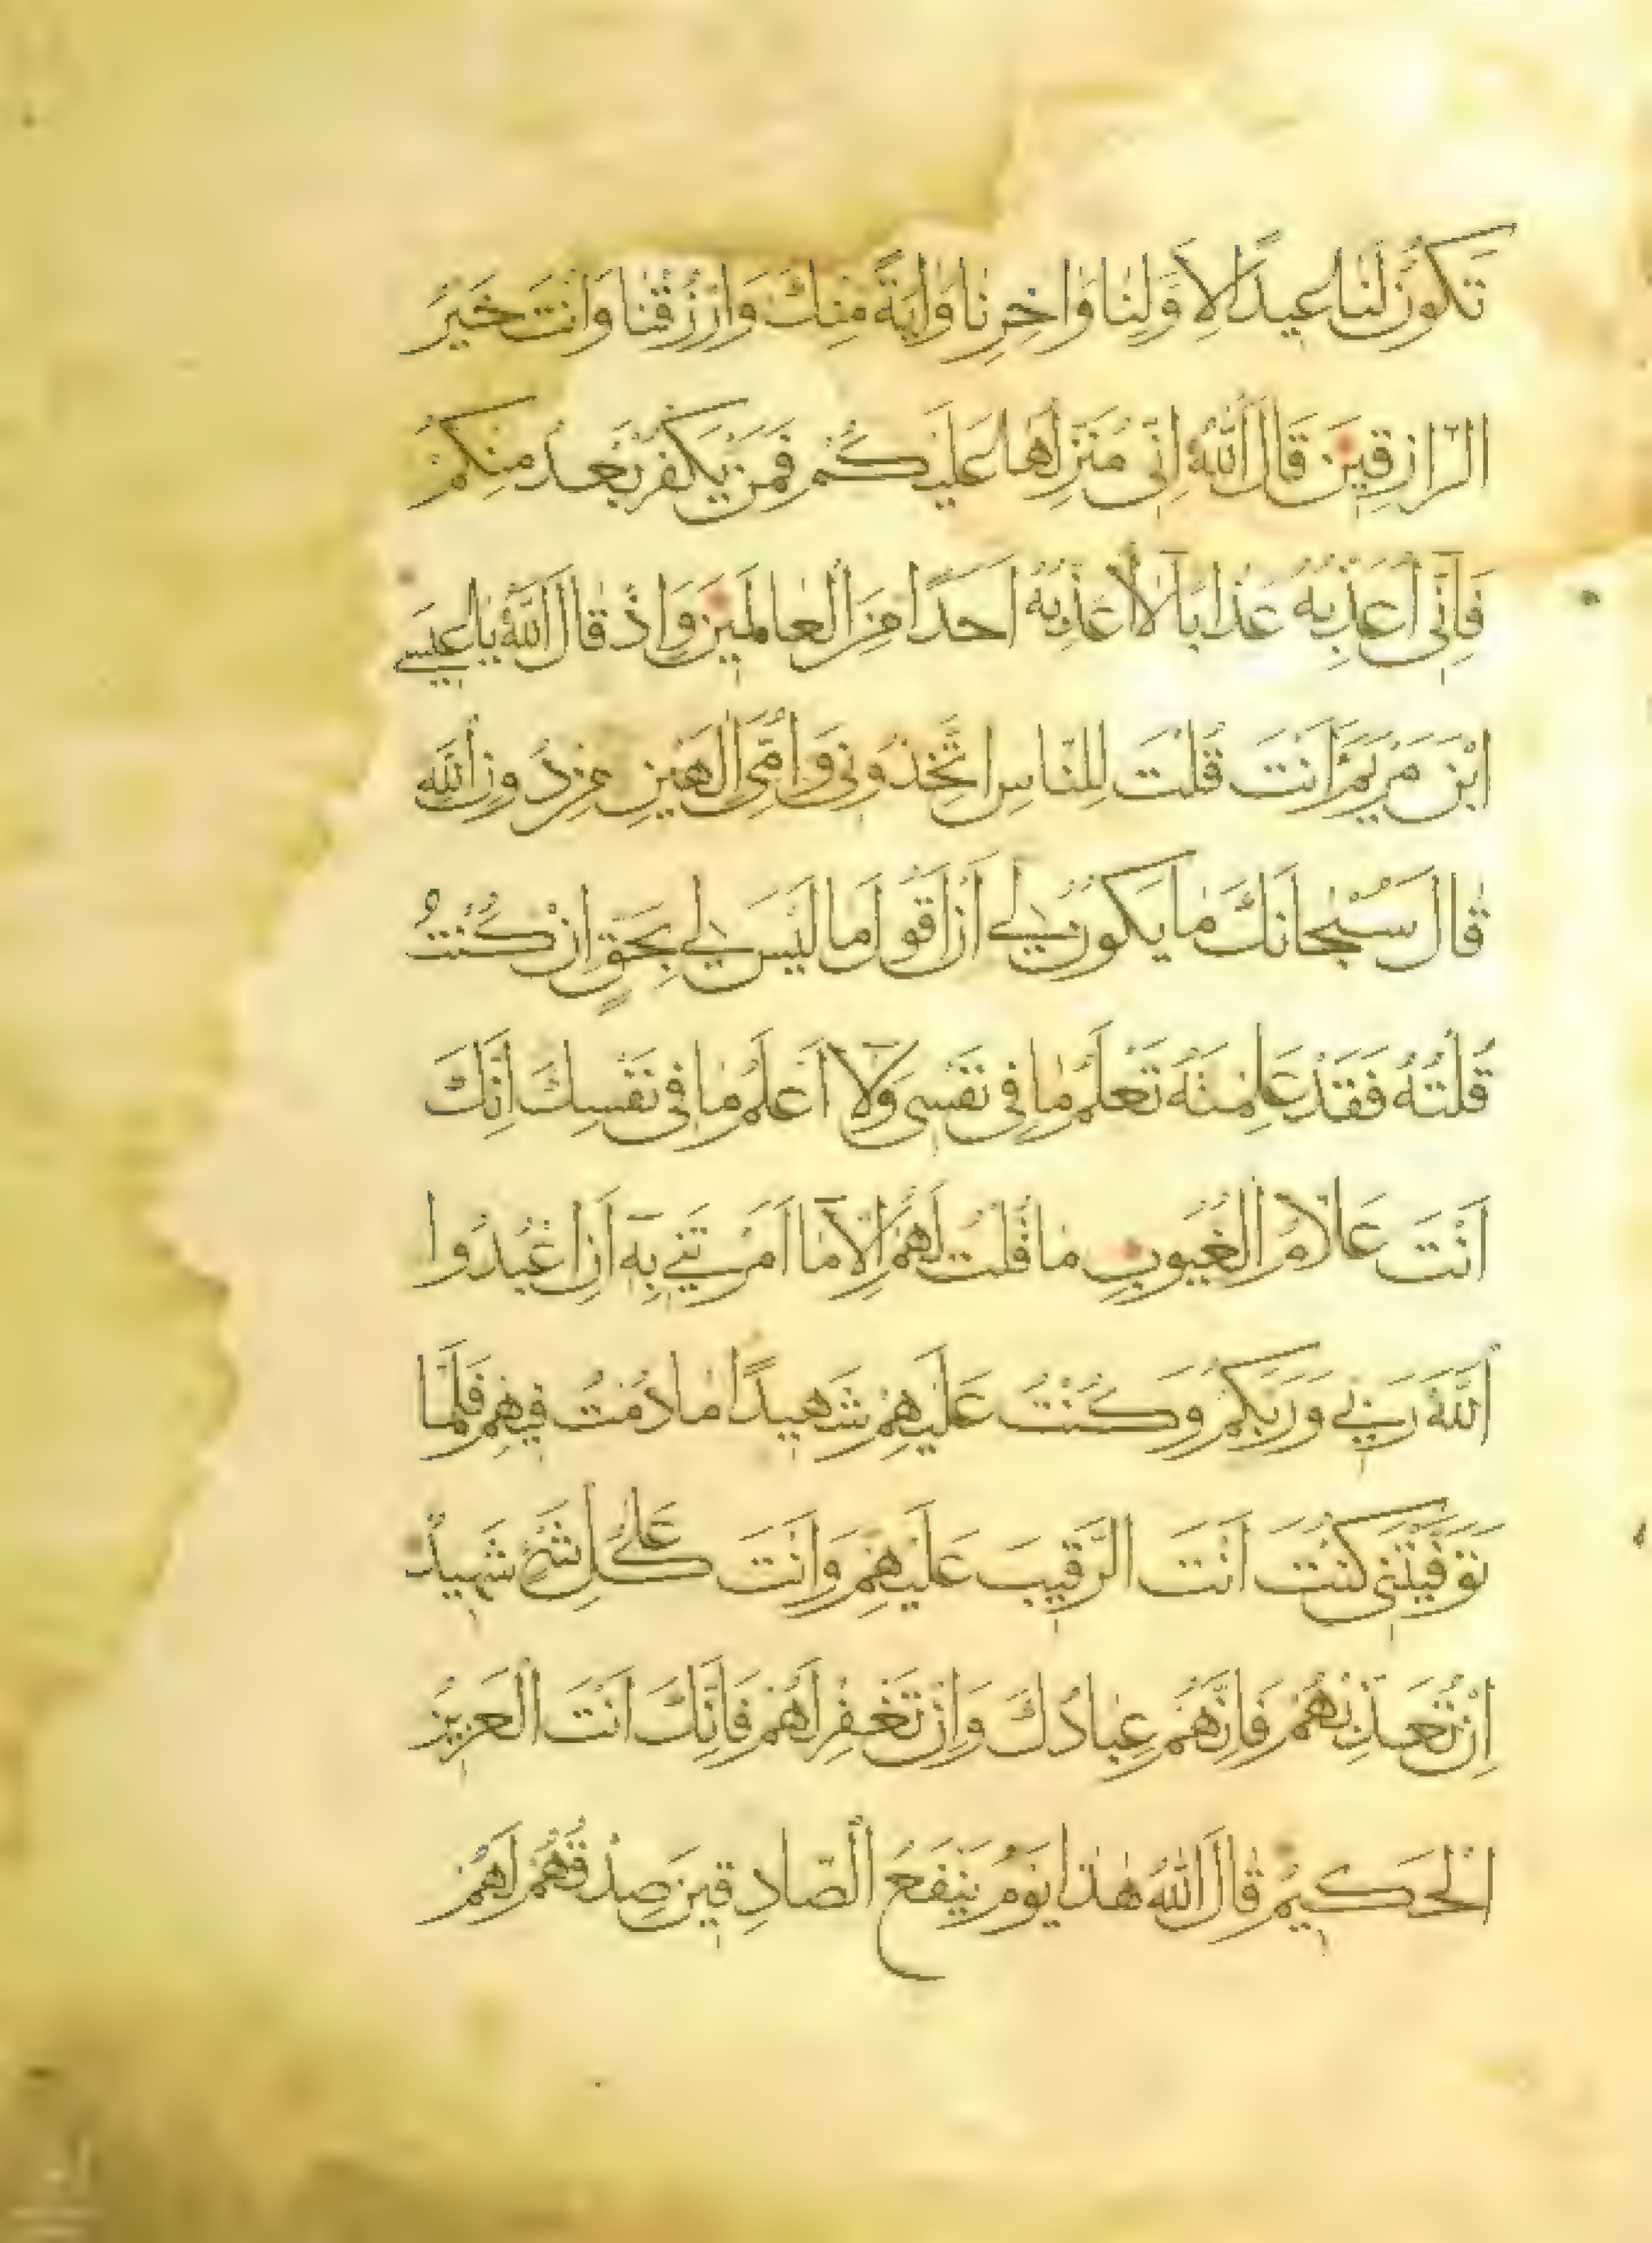 تَكُونُ لَنَا عِيدًا لِأَوَّلِنَا وَاٰخِرِنَا وَاٰيَةً مِنْكَ وَارْزُقْنَا وَاَنْتَ خَيْرُ
الرَّازِقِينَ قَالَ اللّٰهُ اِنِّي مُنَزِّلُهَا عَلَيْكُمْ فَمَنْ يَكْفُرْ بَعْدُ مِنْكُمْ
فَاِنِّي اُعَذِّبُهُ عَذَابًا لَا اُعَذِّبُهُ اَحَدًا مِنَ الْعَالَمِينَ وَاِذْ قَالَ اللّٰهُ يَا عِيسَى
ابْنَ مَرْيَمَ ءَاَنْتَ قُلْتَ لِلنَّاسِ اتَّخِذُونِي وَاُمِّيَ اِلٰهَيْنِ مِنْ دُونِ اللّٰهِ
قَالَ سُبْحَانَكَ مَا يَكُونُ لِي اَنْ اَقُولَ مَا لَيْسَ لِي بِحَقٍّ اِنْ كُنْتُ
قُلْتُهُ فَقَدْ عَلِمْتَهُ تَعْلَمُ مَا فِي نَفْسِي وَلَا اَعْلَمُ مَا فِي نَفْسِكَ اِنَّكَ
اَنْتَ عَلَّامُ الْغُيُوبِ مَا قُلْتُ لَهُمْ اِلَّا مَا اَمَرْتَنِي بِهِ اَنِ اعْبُدُوا
اللّٰهَ رَبِّي وَرَبَّكُمْ وَكُنْتُ عَلَيْهِمْ شَهِيدًا مَا دُمْتُ فِيهِمْ فَلَمَّا
تَوَفَّيْتَنِي كُنْتَ اَنْتَ الرَّقِيبَ عَلَيْهِمْ وَاَنْتَ عَلٰى كُلِّ شَيْءٍ شَهِيدٌ
اِنْ تُعَذِّبْهُمْ فَاِنَّهُمْ عِبَادُكَ وَاِنْ تَغْفِرْ لَهُمْ فَاِنَّكَ اَنْتَ الْعَزِيزُ
الْحَكِيمُ قَالَ اللّٰهُ هٰذَا يَوْمُ يَنْفَعُ الصَّادِقِينَ صِدْقُهُمْ لَهُمْ